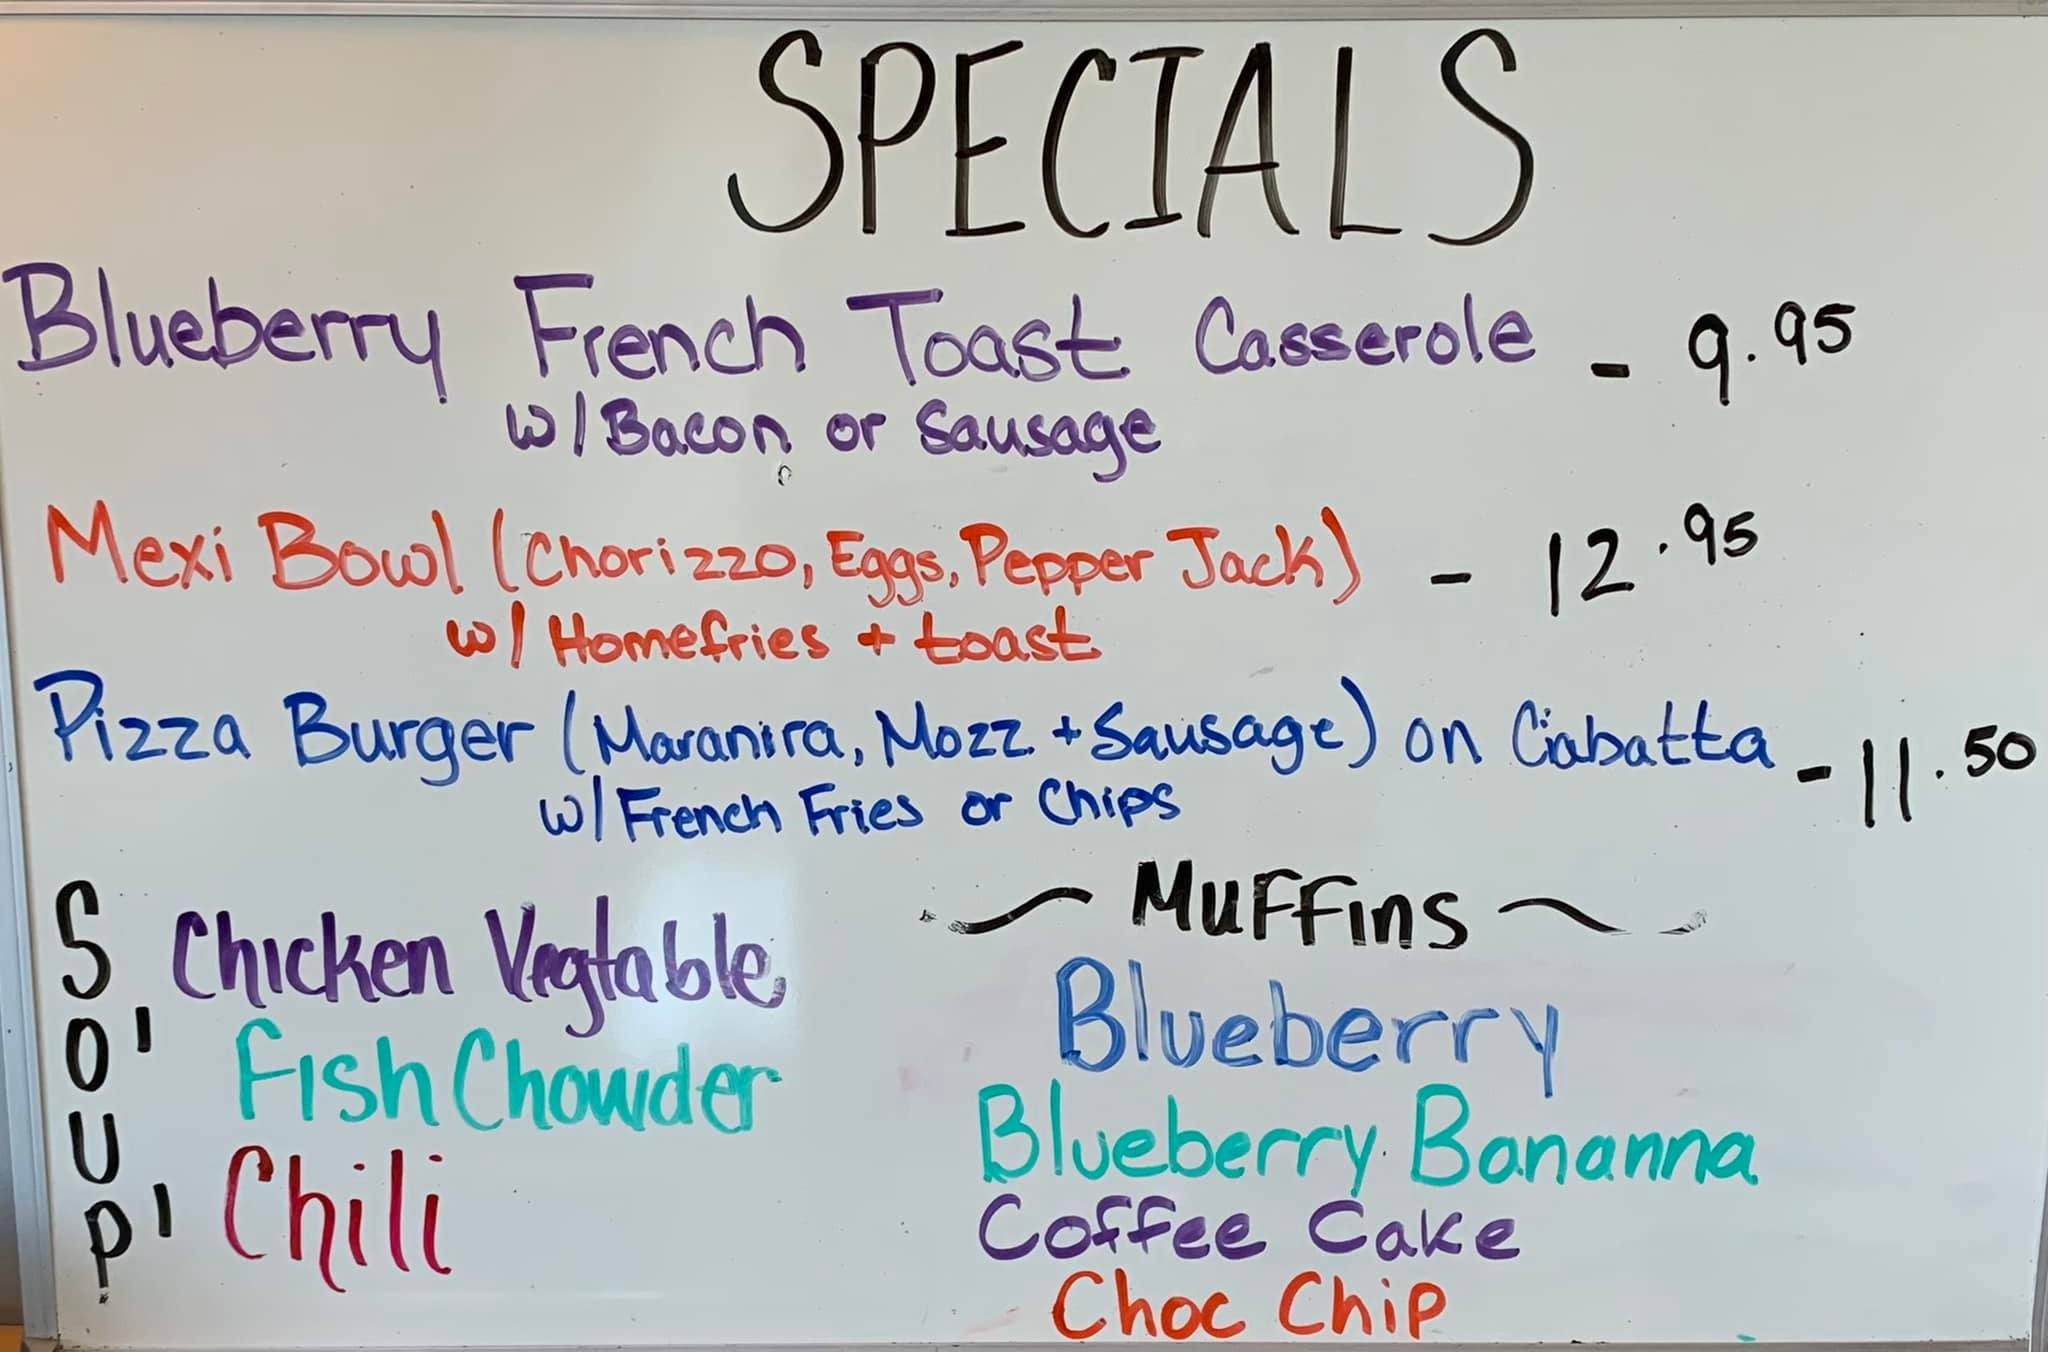 SPECIALS
Blueberry French Toast Casserole - 9.95
w/ Bacon or Sausage
Mexi Bowl (Chorizzo, Eggs, Pepper Jack) - 12.95
w/ Homefries + toast
Pizza Burger (Maranira, Mozz + Sausage) on Ciabatta - 11.50
w/ French Fries or Chips
SOUP
Chicken Vegtable
Fish Chowder
Chili
~ Muffins ~
Blueberry
Blueberry Bananna
Coffee Cake
Choc Chip